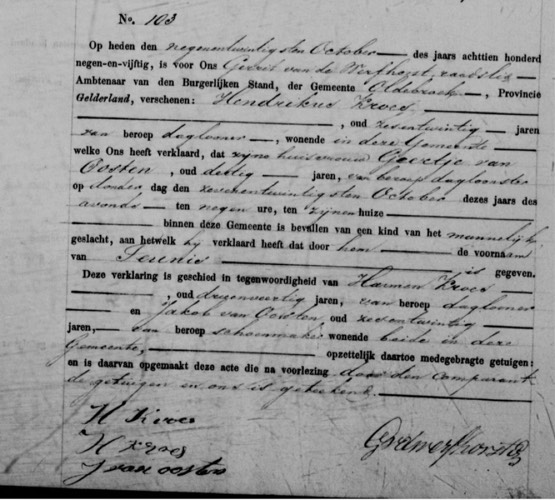 No. 103
Op heden den negenentwintigsten October des jaars achttien honderd
negen-en-vijftig, is voor Ons Gerrit van de Werfhorst, raadslid
Ambtenaar van den Burgerlijken Stand, der Gemeente Oldebroek, Provincie
Gelderland, verschenen: Hendrikus Kroes
, oud zesentwintig jaren
van beroep daglooner, wonende in deze Gemeente
welke Ons heeft verklaard, dat zijne huisvrouw Geertje van
Oosten, oud dertig jaren, van beroep dagloonster
op donder dag den zevenentwintigsten October dezes jaars des
avonds ten negen ure, ten zijnen huize
binnen deze Gemeente is bevallen van een kind van het mannelijk
geslacht, aan hetwelk hij verklaard heeft dat door hem de voornaam
van Teunis is gegeven.
Deze verklaring is geschied in tegenwoordigheid van Harmen Kroes
, oud drieenveertig jaren, van beroep daglooner
en Jakob van Oosten oud zeventwintig
jaren, van beroep schoenmaker wonende beide in deze
Gemeente, opzettelijk daartoe medegebragte getuigen:
en is daarvan opgemaakt deze acte die na voorlezing door den comparant
de getuigen en ons is geteekend.
H Kroes
H Kroes
J van oosten